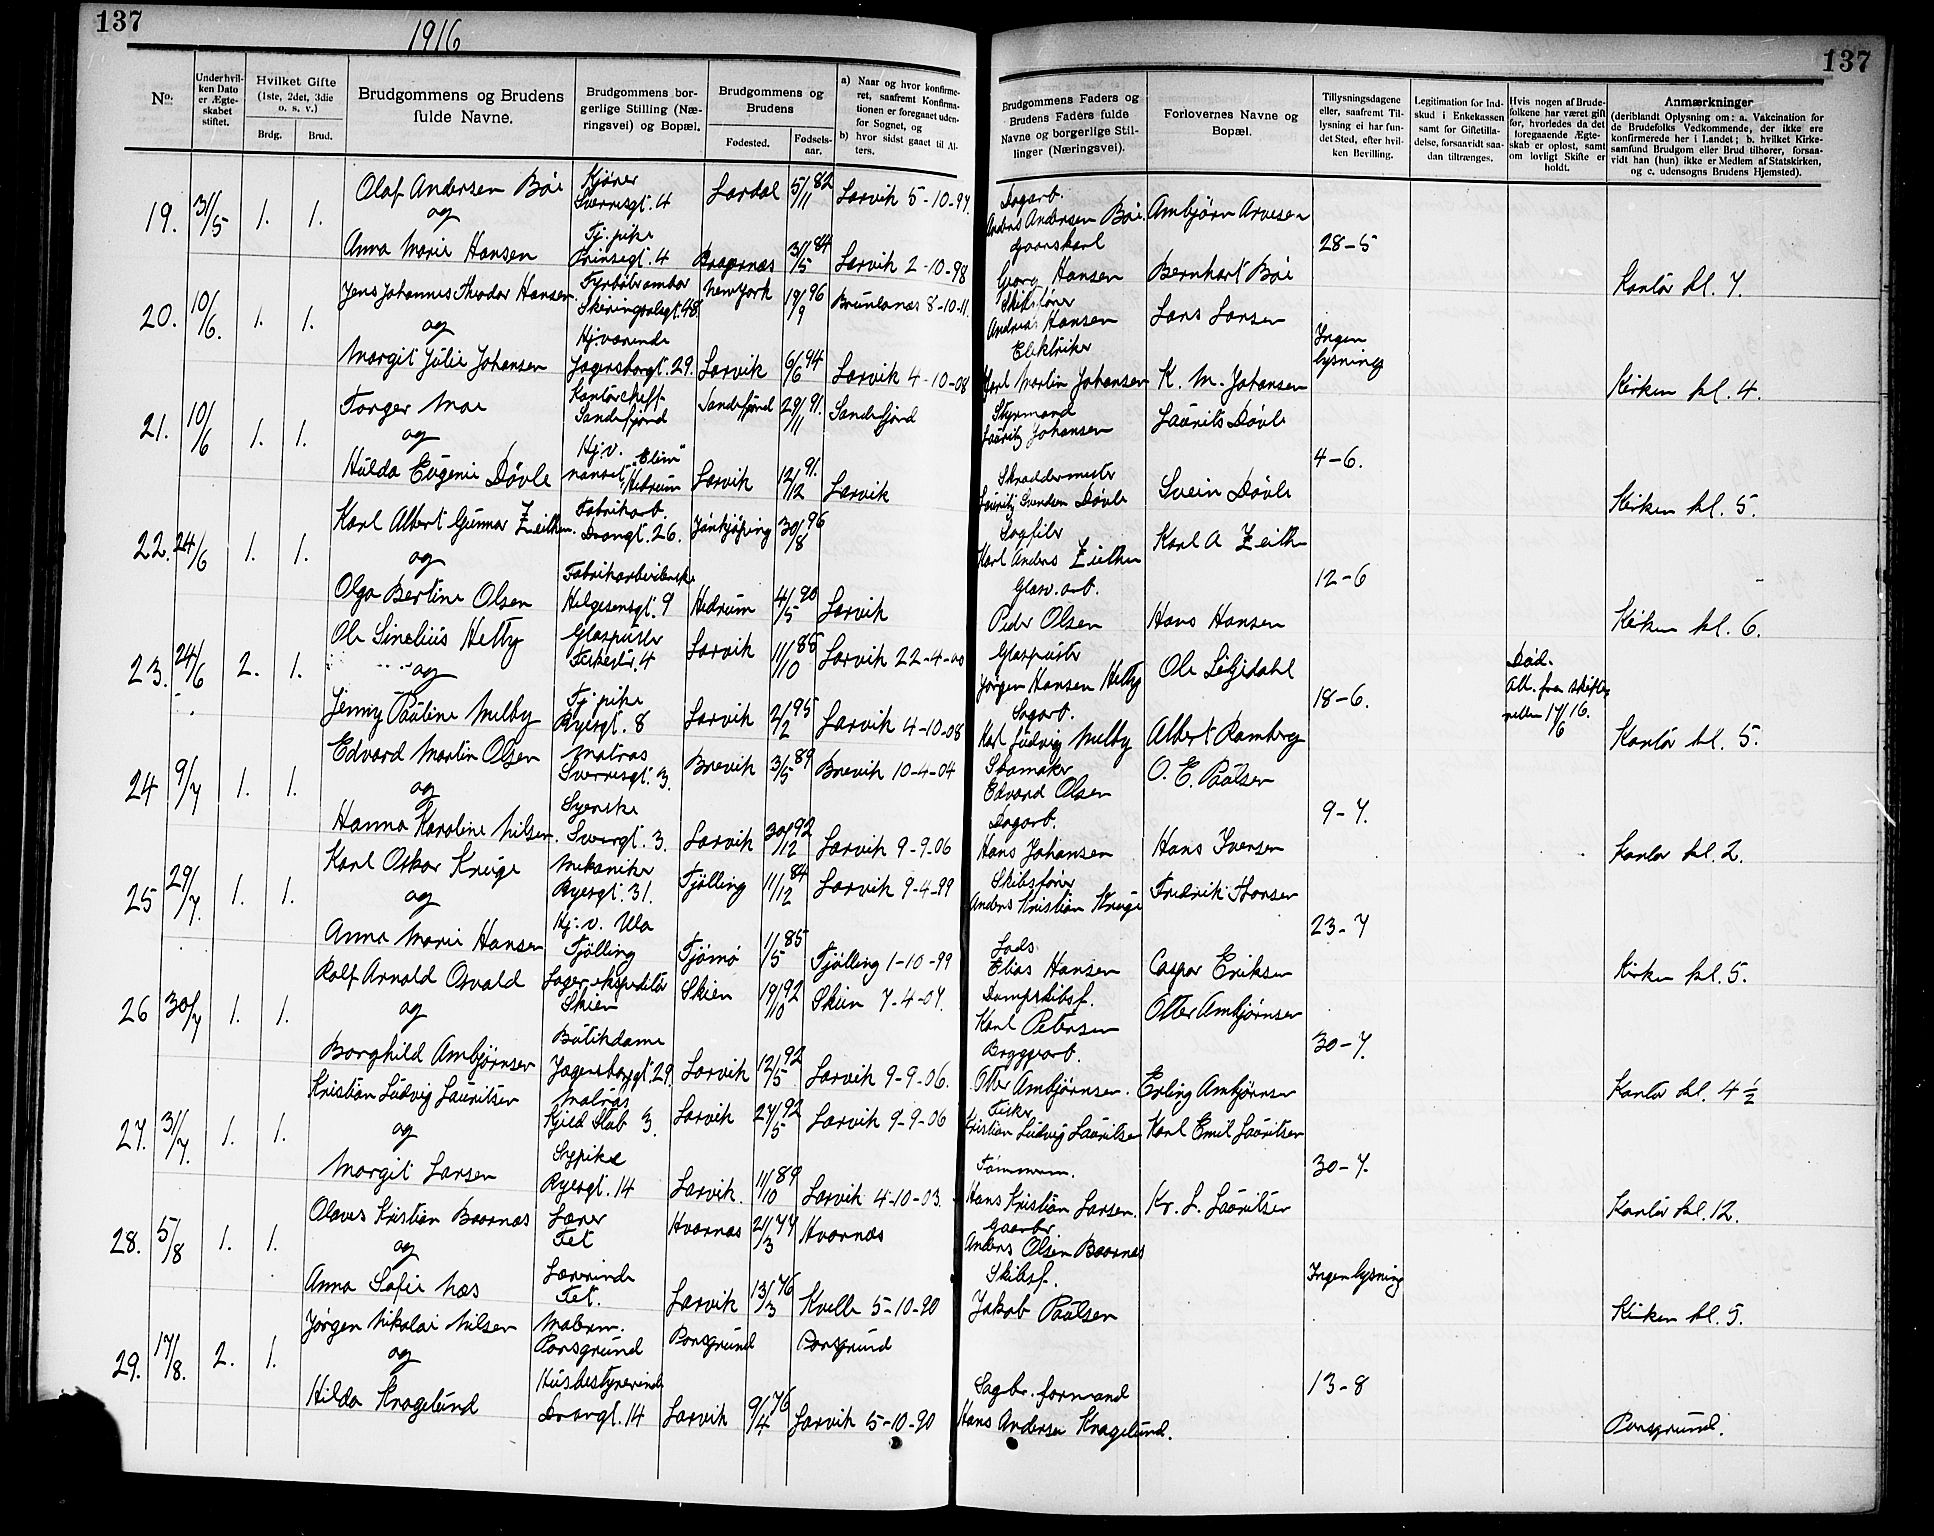 137
1916
137
No.
Underhvilken Dato er Ægteskabet stiftet.
Hvilket Gifte (1ste, 2det, 3die o. s. v.)
Brdg.
Brud.
Brudgommens og Brudens fulde Navne.
Brudgommens borgerlige Stilling (Næringsvei) og Bopæl.
Brudgommens og Brudens
Fødested.
Fødselsaar.
a) Naar og hvor konfirmeret, saafremt Konfirmationen er foregaaet udenfor Sognet, og
b) hvor sidst gaaet til Alters.
Brudgommens Faders og Brudens Faders fulde Navne og borgerlige Stillinger (Næringsvei).
Forlovernes Navne og Bopæl.
Tillysningsdagene eller, saafremt Tillysning ei har fundet Sted, efter hvilken Bevilling.
Legitimation for Indskud i Enkekassen samt for Giftetilladelse, forsaavidt saadan tiltrænges.
Hvis nogen af Brudefolkene har været gift før, hvorledes da det foregaaende Ægteskab er opløst, samt om lovligt Skifte er holdt.
Anmærkninger
(deriblandt Oplysning om: a. Vakcination for de Brudefolks Vedkommende, der ikke ere konfirmerede her i Landet; b. hvilket Kirkesamfund Brudgom eller Brud tilhører, forsaavidt han (hun) ikke er Medlem af Statskirken, og c. udensogns Brudens Hjemsted).
19. 31/5 1. 1. Olaf Andersen Bøe Kjører Sverresgt. 4 Lardal 5/11 82 Larvik 5-10-97. Dagarb. Anders Andersen Bøe Ambjörn Arvesen
og
28-5
Anna Marie Hansen Tj. pike Prinsegt. 4 31/5 84 Larvik 2-10-98 Gaardskarl Georg Hansen Bernhart Bøe Kontor kl. 7.
20. 10/6. 1. 1. Jens Johannes Theodor Hansen Fyrbøter ombor Skiringssalsgt. 48. New York 19/9 96 Brunlanes 8-10-11. Skibsfører Andreas Hansen Lars Larsen
og
Ingen lysning
Margit Julie Johansen Hjværende Jegersborgt. 29. Larvik 6/6 94 Larvik 4-10-08 Elektriker Karl Martin Johansen K. M. Johansen Kirken kl. 4.
21. 10/6 1. 1. Torger Moe Kontorcheff Sandefjord Sandefjord 29/11 91. Sandefjord Styrmand Lauritz Johansen Laurits Døvle
og
4-6.
Hulda Eugenie Døvle Hj. v. Nanset "Elim" Hedrum Larvik 12/12 91. Larvik Skræddermester Lauritz Svendsen Døvle Svein Døvle Kirken kl. 5.
22. 24/6 1. 1. Karl Albert Gunnar Zeithen. Fabrikarb. Drongt. 26. Jönkjöping 30/8 96 Sagfiler Karl Anders Zeithen Karl A Zeithen
og
12-6
Olga Bertine Olsen Fabrikarbeiderske Helgesensgt. 9 Hedrum 4/5 90 Larvik Glasv. arb. Peder Olsen Hans Hansen Kirken kl. 6.
23. 24/6 2. 1. Ole Sinelius Hetty Glaspuster Fiskestr. 4 Larvik 11/10 85 Larvik 22-4-00 Glaspuster Jørgen Hansen Hetty Ole Liljedahl Død. Att. fra skifteretten 17/6 16.
og
18-6.
Jenny Pauline Melby Tj pike Ryesgt. 8 Larvik 2/2 95 Larvik 4-10-08 Sagarb. Karl Ludvig Melby Albert Ramberg Kontor kl. 5.
24 9/7 1. 1. Edvard Martin Olsen Matros Sverresgt. 3. Brevik 3/5 89 Brevik 10-4-04 Skomaker Edvard Olsen O. E. Paulsen
og
9-7.
Hanna Karoline Nilsen. Syerske Sverrgt. 3. Larvik 30/12 92 Larvik 9-9-06 Dagarb. Hans Johansen Hans Iversen Kontor kl. 2.
25 29/7. 1. 1. Karl Oskar Kruge Mekaniker Ryesgt. 31. Tjölling 11/12 84 Larvik 9-4-99 Skibsfører Anders Kristian Kruge Fredrik Thorsen
og
23-7
Anna Marie Hansen Hj. v. Ula Tjölling Tjömø 11/5 85 Tjölling 1-10-99 Lods Elias Hansen Caspar Eriksen Kirken kl. 5.
26 30/7 1. 1. Rolf Arnold Osvald Lagerekspeditør Skien Skien 19/10 92 Skien 7-4-07. Dampskibsf. Karl Petersen Otter Ambjørnsen
og
30-7.
Borghild Ambjørnsen Butikdame Jegersborggt. 29. Larvik 12/5 92 Larvik 9-9-06. Bryggearb. Otter Ambjørnsen. Erling Ambjørnsen Kontor kl. 4 ½
27. 31/7. 1. 1. Kristian Ludvig Lauritsen Matros Kjeld Stub 3. Larvik 27/5 92 Larvik 9-9-06 Fisker Kristian Ludvig Lauritsen Karl Emil Lauritsen
og
30-7.
Margit Larsen Sypike Ryesgt. 14 Larvik. 11/10 89 Larvik 4-10-03. Tømmerm. Hans Kristian Larsen. Kr. L. Lauritsen Kontor kl. 12.
28. 5/8 1. 1. Olaves Kristian Baarnes Lærer Fet Hvarnes 21/3 77 Hvarnes Gaardbr. Anders Olsen Baarnes
og
Ingen lysning
Anna Sofie Næs Lærerinde Fet. Larvik 13/3 76 Kvelle 5-10-90 Skibsf. Jakob Paulsen Kirken kl. 5.
29. 17/8. 2. 1. Jørgen Nikolai Nilsen Malerm. Porsgrund Porsgrund Porsgrund
og
13-8
Hilda Kragelund Husbestyrerinde Drongt. 14 Larvik 9/4 76 Larvik 5-10-90 Sagbr. formand Hans Andersen Kragelund. Porsgrund.